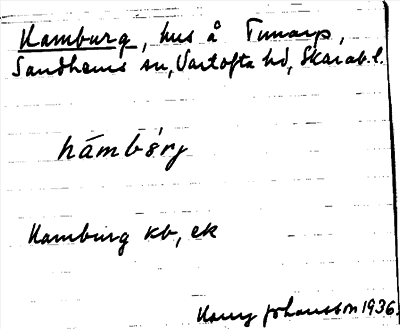 Hamburg, hus å Tunarp,
Sandhems sn, Vartofta hd, Skarab. l.
hámbə̀rj
Hamburg kb, ek
Harry Johansson 1936.